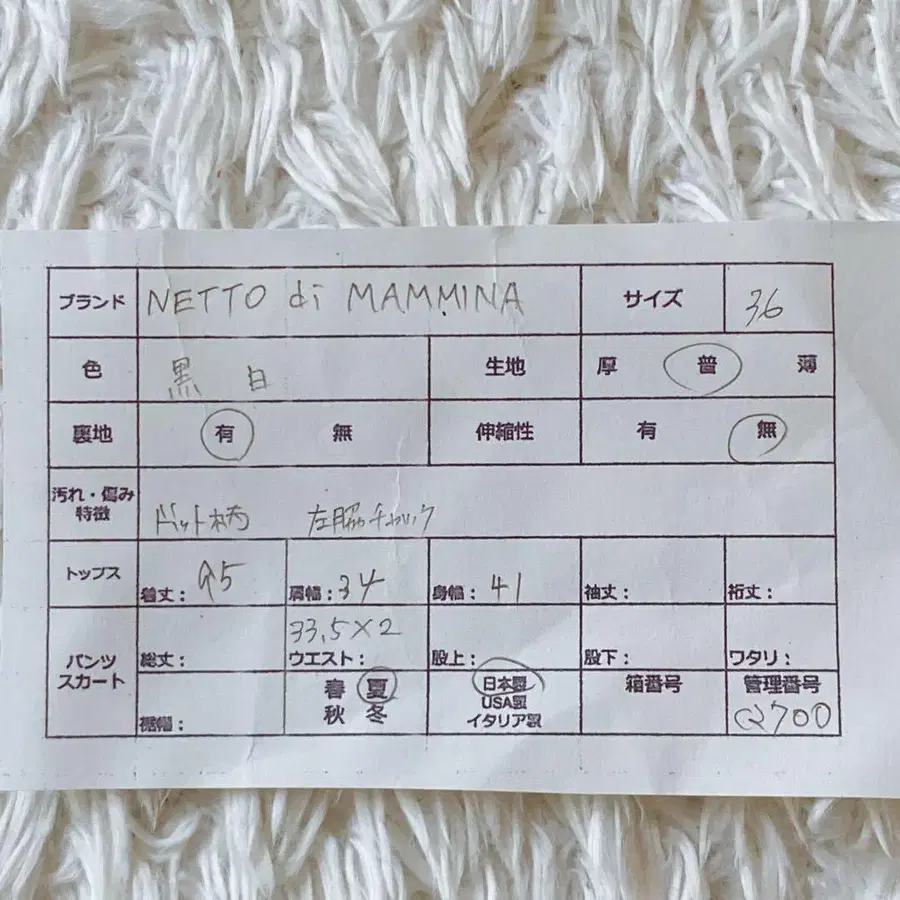 ブランド NETTO di MAMMINA サイズ 36
色 黒 白 生地 厚 普 薄
裏地 有 無 伸縮性 有 無
汚れ・傷み
特徴 ドット柄 左脇チャック
トップス 着丈: 肩幅:34 身幅:41 袖丈: 裄丈:
パンツ
スカート 総丈: 33.5×2 ウエスト: 股上: 股下: ワタリ:
裾幅: 春 夏 日本製 箱番号 管理番号
秋 冬 USA製 Q700
イタリア製